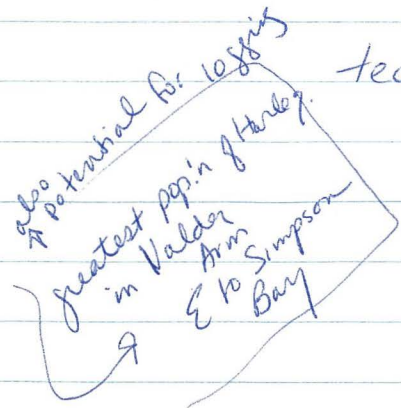 also
↑ potential for logging
greatest pop'n of Harleq.
in Valdez
Arm
E to Simpson
Bay
tec